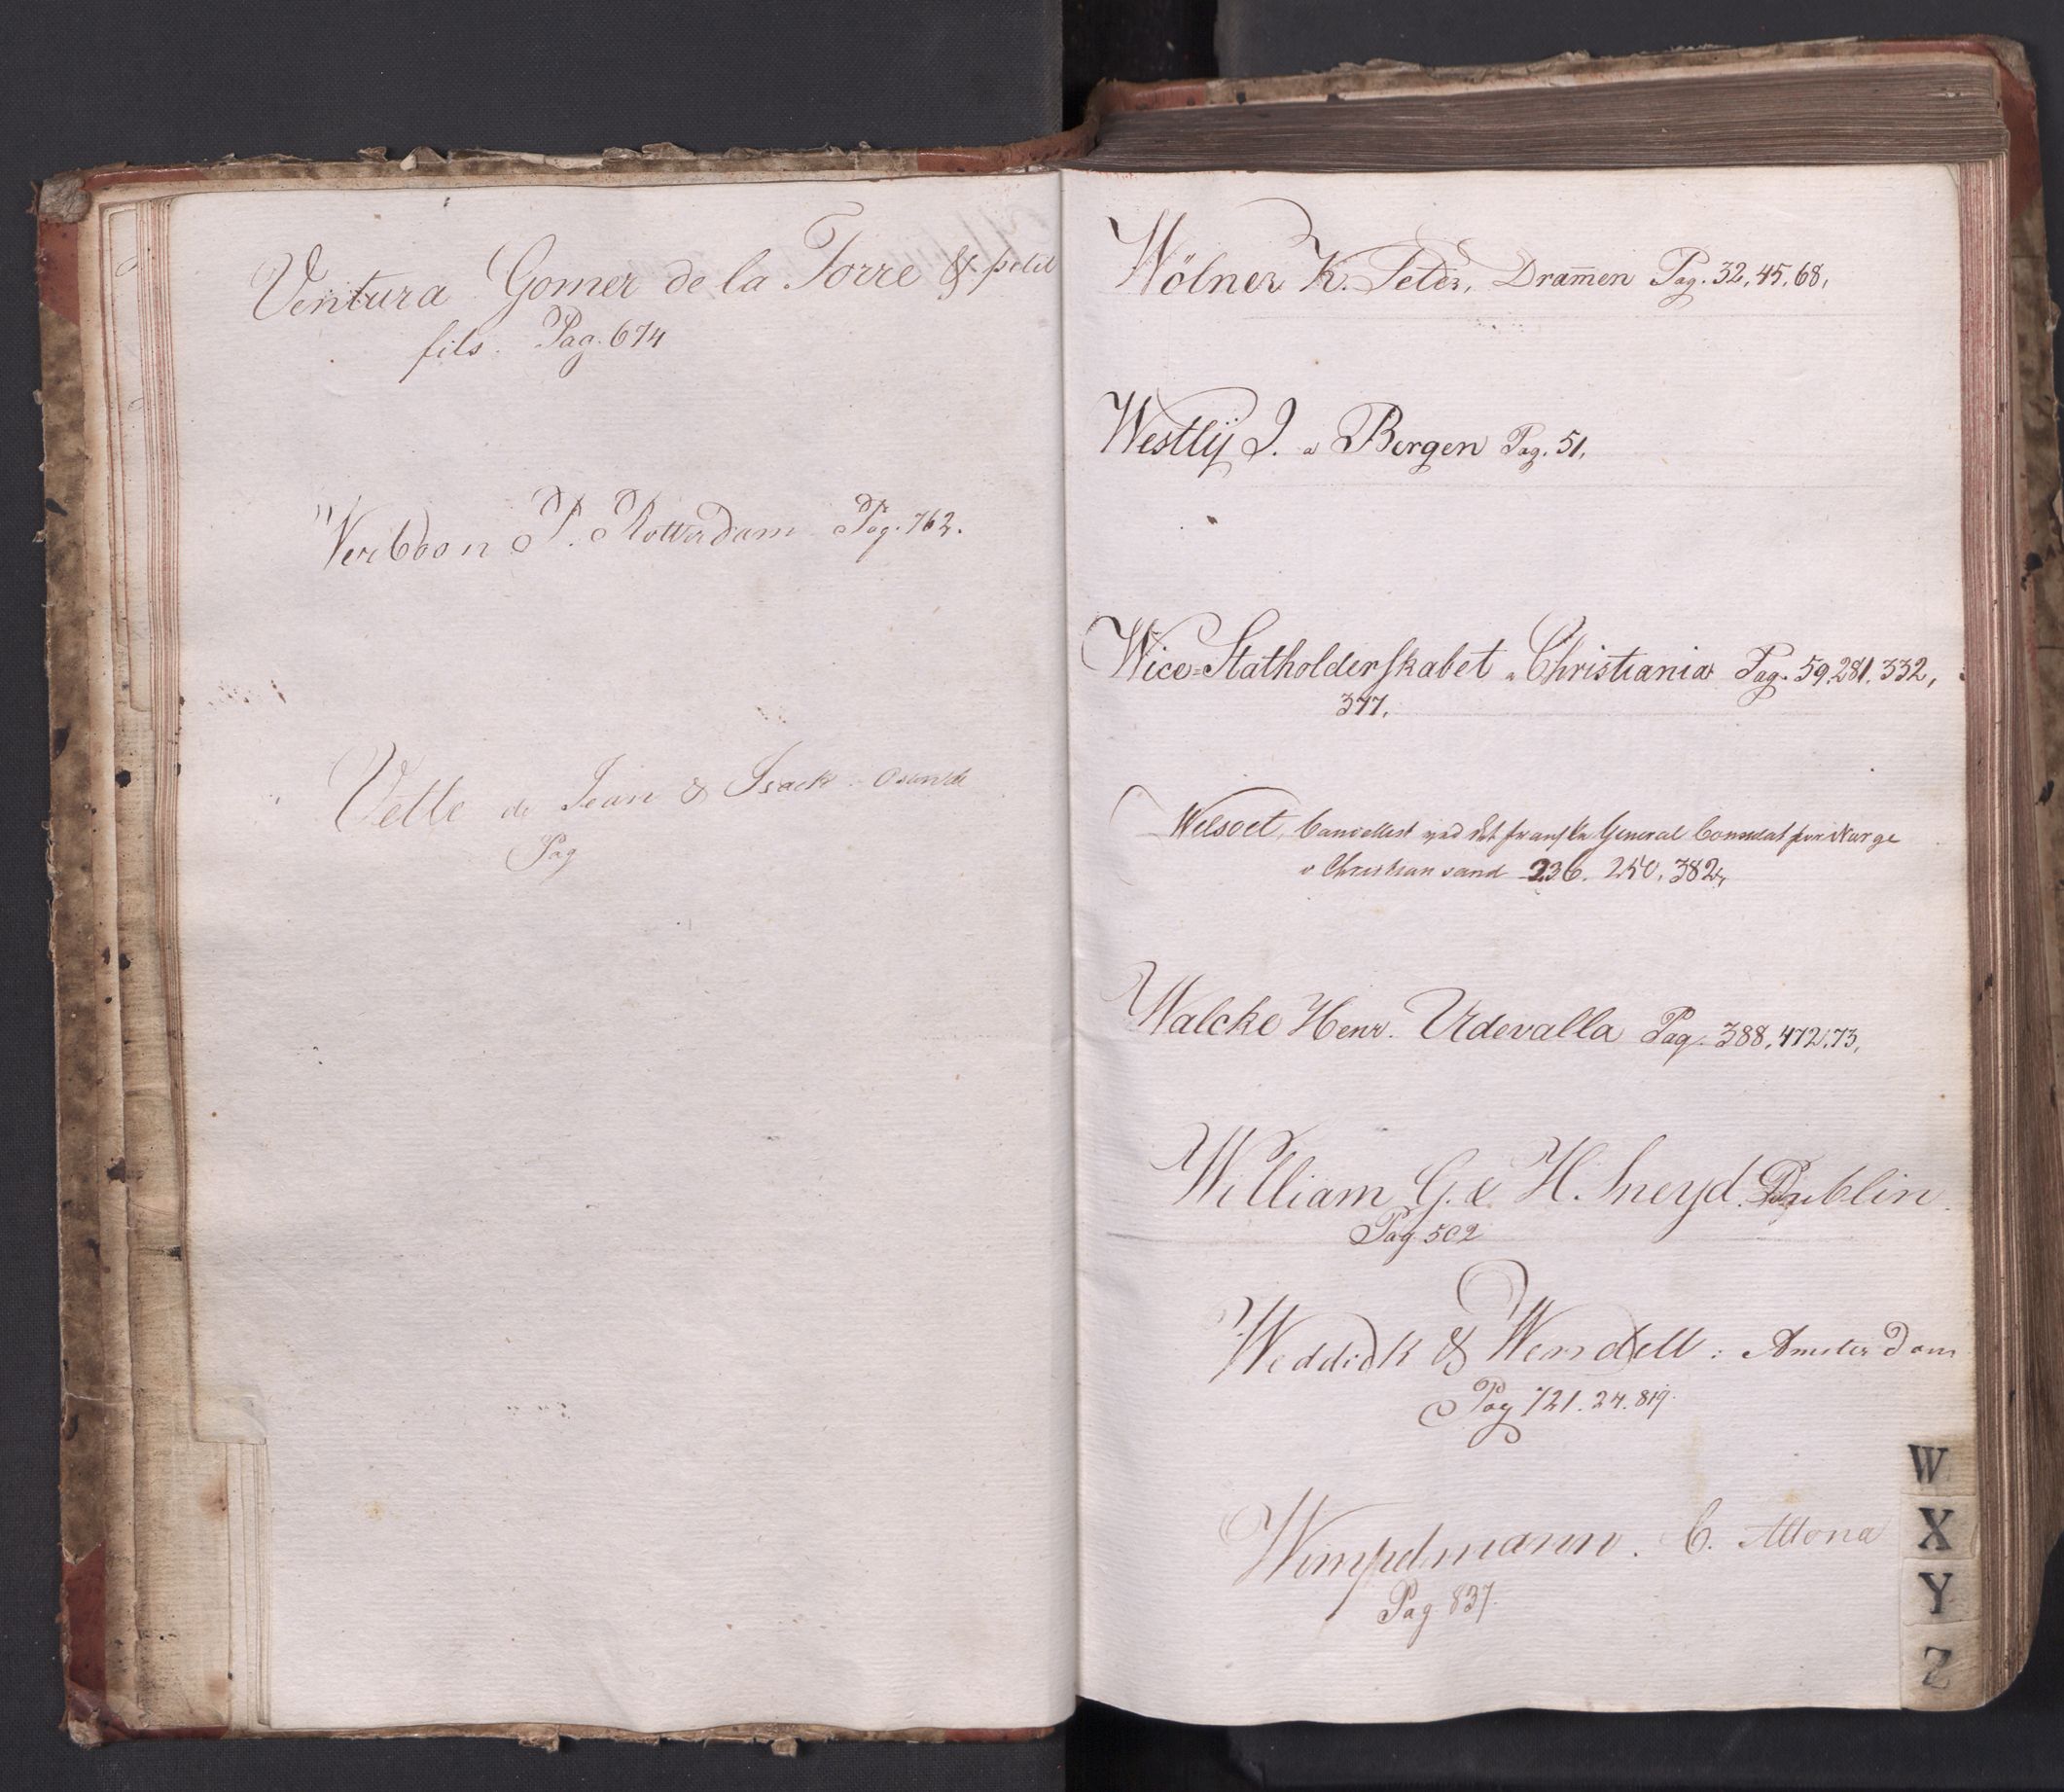 Ventura Gomer de la Torre & petit
fils. Pag. 674
Verboon P. Rotterdam Pag. 762.
Velle de Jean & Isack
Pag
Wölner K. Peter, Dram̅en Pag. 32, 45, 68,
Westlÿ J. a Bergen Pag. 51,
Wice=Statholderskabet a Christiania Pag. 59, 281. 332,
377,
Welsoet, Cancellist ved det franske General Consulat for Norge
v Christiansand 236. 250, 382,
Walcke Henr. Udevalla Pag. 388, 472, 73,
William G. & H. Sneyd. Dublin
Pag. 502
Weddick & Wendell: Amsterdam
Pag 721. 24. 819.
Wimpelmann. C. Altona
Pag 837
W
X
Y
Z